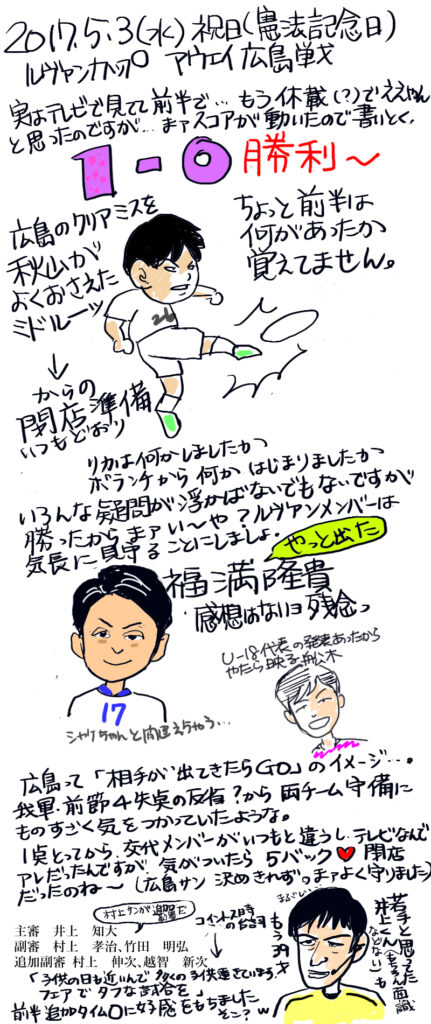 2017.5.3(水)祝日(憲法記念日)
ルヴァンカップ アウェイ広島戦
実はテレビで見てて前半で…もう休載(?)でええやん
と思ったのですが…まァスコアが動いたので書いとく。
1-0 勝利〜
広島のクリアミスを
秋山が
よくおさえた
ミドルーッ
ちょっと前半は
何があったか
覚えてません。
26
↓
からの
閉店準備
いつもどおり
リカは何かしましたか
ボランチから何かはじまりましたか
いろんな疑問が浮かばないでもないですが
勝ったからまァい〜や?ルヴァンメンバーは
気長に見守ることにしましょ。
やっと出た
福満隆貴
感想はないヨ残念っ
17
シャケちゃんと間違えちゃう…
U-18代表の発表あったから
やたら映る舩木
広島って「相手が出てきたらGO」のイメージ…。
我軍・前節4失点の反省?から両チーム守備に
ものすごく気をつかっていたような。
1点とってから、交代メンバーがいつもと違うし、テレビなんで
アレだったんですが気がついたら5バック♥閉店
だったのね〜(広島サン決めきれずっまァよく守りました)
村上サンが追加副審だ
主審 井上 知大
副審 村上 孝治、竹田 明弘
追加副審 村上 伸次、越智 新次
「子供の日も近いんで多くの子供達きています。
フェアでタフな試合を」
コイントス時の台詞
前半追加タイム0に好感をもちました
そこ?w
まるごしっ
若手と思ってた
井上くん(もちろん面識
などない)も
もう39才